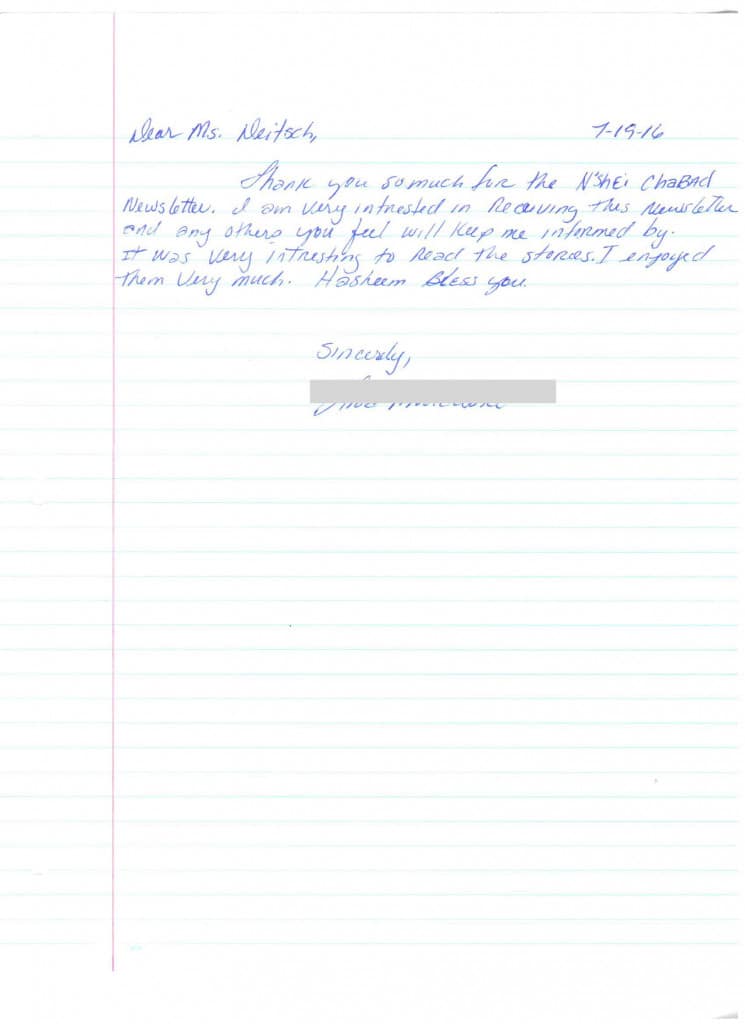 Dear Ms. Deitsch, 7-19-16
Thank you so much for the N'shei Chabad
Newsletter. I am very intrested in Receiving this Newsletter
and any others you feel will keep me informed by.
It was very intresting to Read the stories. I enjoyed
them very much. Hasheem Bless you.
Sincerly,